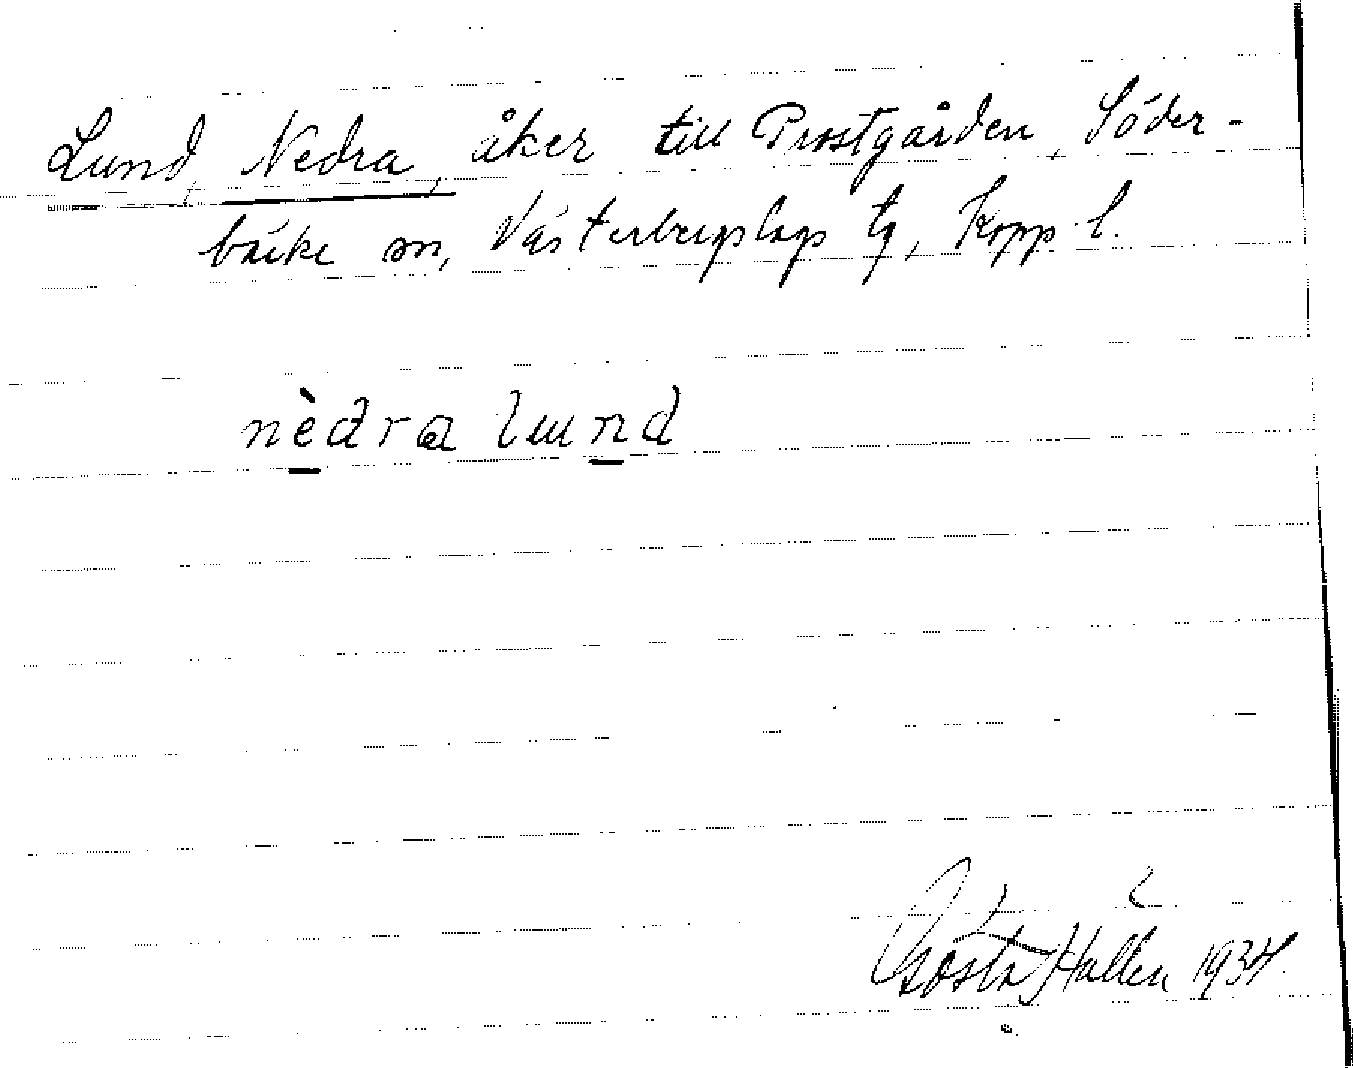 Lund, Nedra, åker till Prostgården, Söder-
bärke sn, Västerbergslags tg, Kopp. l.
nèdra lund
Gösta Hallén 1934.